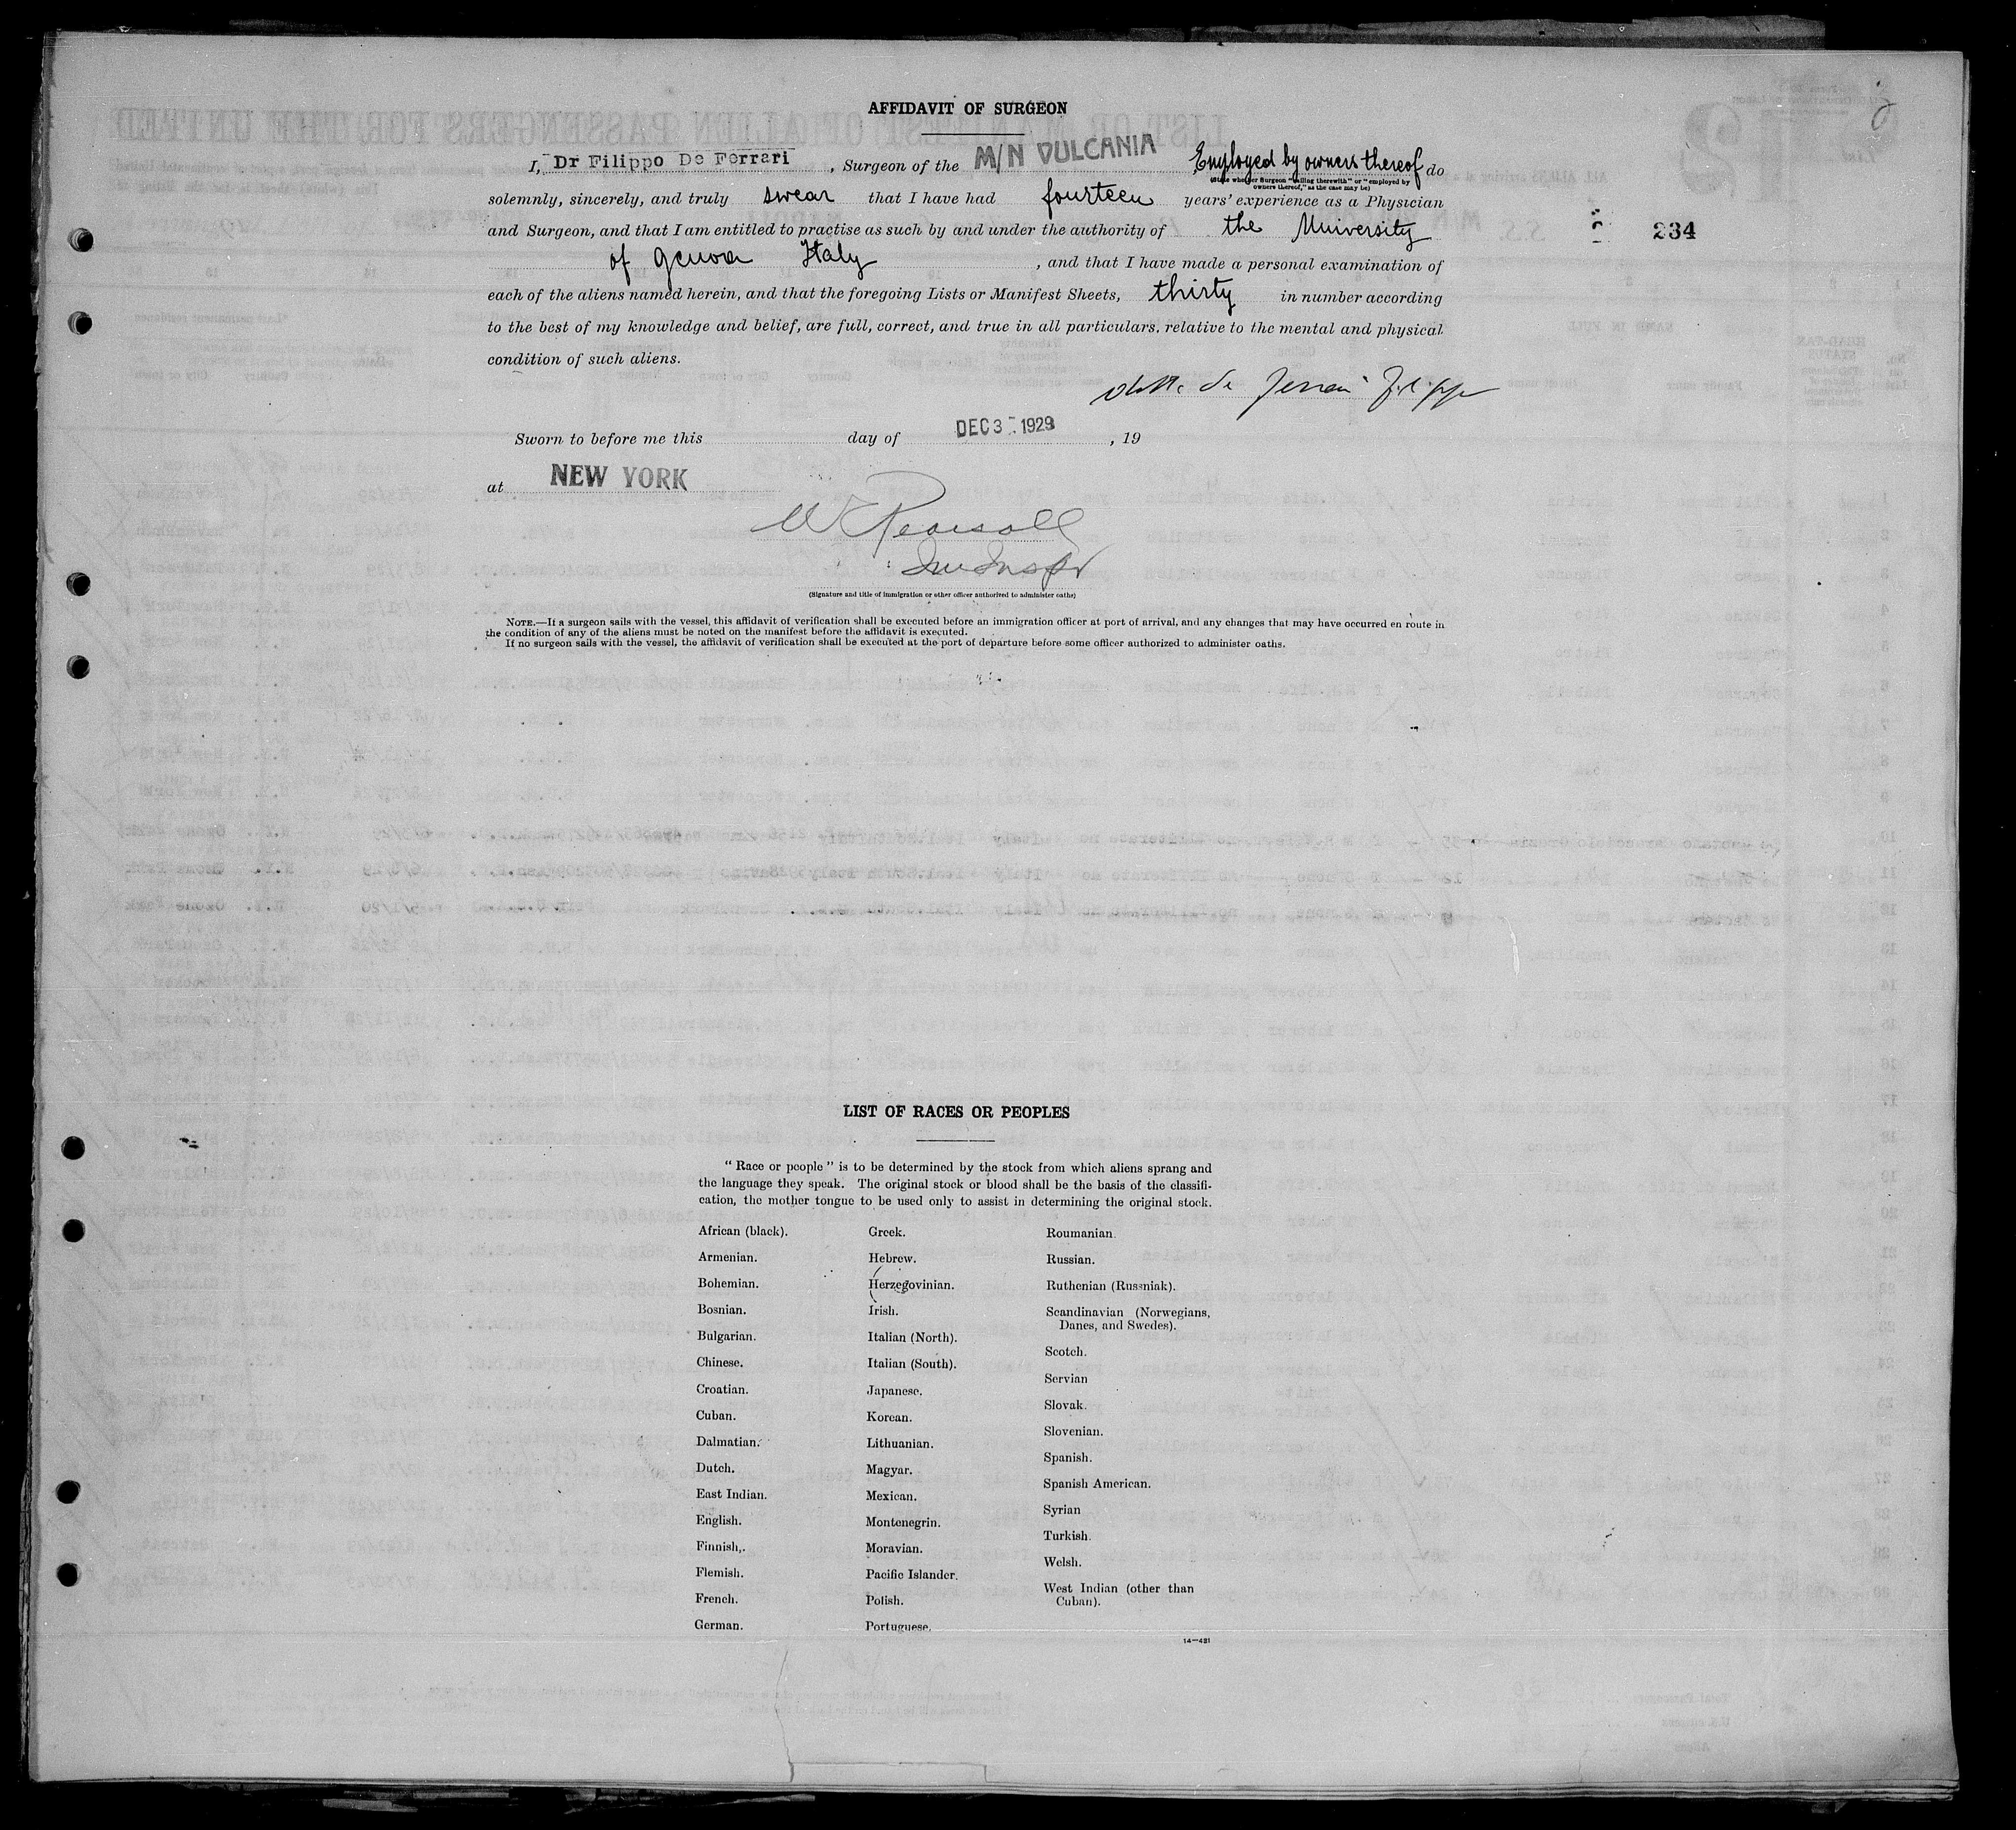 AFFIDAVIT OF SURGEON
I, Dr Filippo De Ferrari, Surgeon of the M/N VULCANIA Employed by owners thereof do
(State whether Surgeon "sailing therewith" or "employed by
owners thereof," as the case may be)
solemnly, sincerely, and truly swear that I have had fourteen years' experience as a Physician
and Surgeon, and that I am entitled to practise as such by and under the authority of the University
234
of Genova Italy, and that I have made a personal examination of
each of the aliens named herein, and that the foregoing Lists or Manifest Sheets, thirty in number according
to the best of my knowledge and belief, are full, correct, and true in all particulars, relative to the mental and physical
condition of such aliens.
Dott. De Ferrari Filippo
Sworn to before me this day of DEC 3 1929, 19
at NEW YORK
W Pearsall
Imm Inspr
(Signature and title of immigration or other officer authorized to administer oaths)
NOTE.—If a surgeon sails with the vessel, this affidavit of verification shall be executed before an immigration officer at port of arrival, and any changes that may have occurred en route in
the condition of any of the aliens must be noted on the manifest before the affidavit is executed.
If no surgeon sails with the vessel, the affidavit of verification shall be executed at the port of departure before some officer authorized to administer oaths.
LIST OF RACES OR PEOPLES
"Race or people" is to be determined by the stock from which aliens sprang and
the language they speak. The original stock or blood shall be the basis of the classifi-
cation, the mother tongue to be used only to assist in determining the original stock.
African (black).
Armenian.
Bohemian.
Bosnian.
Bulgarian.
Chinese.
Croatian.
Cuban.
Dalmatian.
Dutch.
East Indian.
English.
Finnish.
Flemish.
French.
German.
Greek.
Hebrew.
Herzegovinian.
Irish.
Italian (North).
Italian (South).
Japanese.
Korean.
Lithuanian.
Magyar.
Mexican.
Montenegrin.
Moravian.
Pacific Islander.
Polish.
Portuguese.
Roumanian.
Russian.
Ruthenian (Russniak).
Scandinavian (Norwegians,
Danes, and Swedes).
Scotch.
Servian
Slovak.
Slovenian.
Spanish.
Spanish American.
Syrian
Turkish.
Welsh.
West Indian (other than
Cuban).
14—481